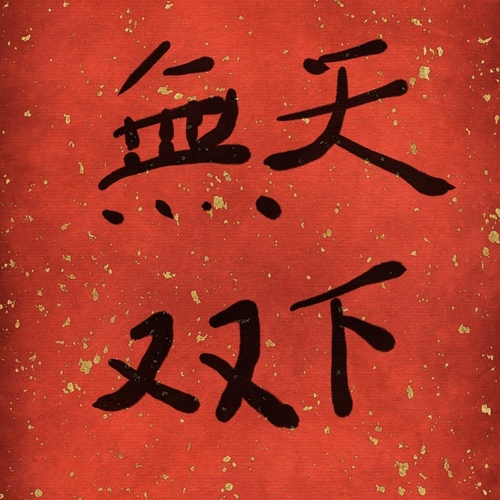 天下
無双